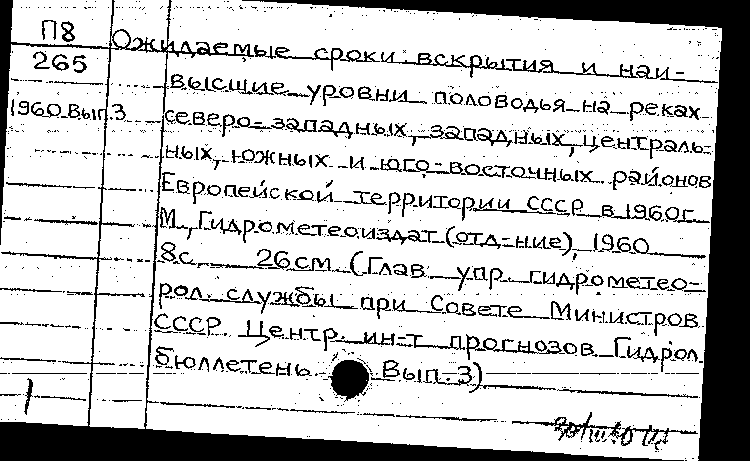 П8
265
1960 Вып.3
Ожидаемые сроки вскрытия и наи-
высшие уровни половодья на реках
северо-западных, западных, централь-
ных, южных и юго-восточных районов
Европейской территории СССР в 1960г.
М., Гидрометеоиздат (отд-ние), 1960
8с. 26см (Глав. упр. гидрометео-
рол. службы при Совете Министров
СССР. Центр. ин-т прогнозов Гидрол.
бюллетень Вып. 3)
1